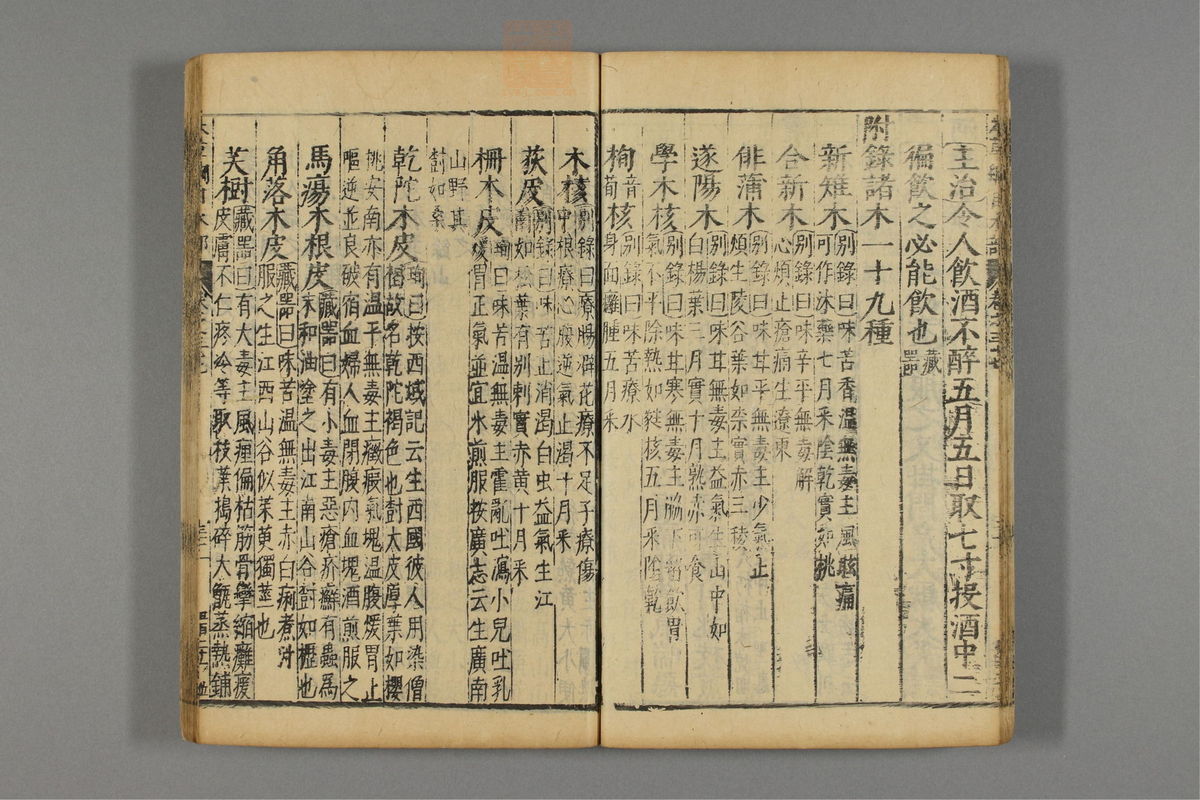 主治令人飲酒不醉五月五日取七寸投酒中二
徧飲之必能飲也藏器
附錄諸木一十九種
新雉木別錄曰味苦香溫無毒主風眩痛
可作沐藥七月采陰乾實如桃
合新木別錄曰味辛平無毒解
心煩止瘡痛生遼東
俳蒲木別錄曰味甘平無毒主少氣止
煩生陵谷葉如柰實赤三稜
遂陽木別錄曰味甘無毒主益氣生山中如
白楊葉三月實十月熟赤可食
學木核別錄曰味甘寒無毒主脇下留飲胃
氣不平除熱如蕤核五月采陰乾
栒音荀核別錄曰味苦療水
身面癰腫五月采
木核別錄曰療腸澼花療不足子療傷
中根療心腹逆氣止渴十月采
荻皮別錄曰味苦止消渴白虫益氣生江
南如松葉有別刺實赤黄十月采
柵木皮珣曰味苦溫無毒主霍亂吐瀉小兒吐乳
煖胃正氣並宜水煎服按廣志云生廣南
山野其
樹如桑
乾陀木皮珣曰按西域記云生西國彼人用染僧
褐故名乾陀褐色也樹大皮厚葉如櫻
桃安南亦有溫平無毒主癥瘕氣塊溫腹煖胃止
嘔逆並良破宿血婦人血閉腹內血塊酒煎服之
馬瘍木根皮藏器曰有小毒主惡瘡疥癬有蟲爲
末和油塗之出江南山谷樹如櫪也
角落木皮藏器曰味苦溫無毒主赤白痢煮汁
服之生江西山谷似茱萸獨莖也
芙樹藏器曰有大毒主風痺偏枯筋骨攣縮癱瘓
皮膚不仁疼冷等取枝葉搗碎大甑蒸熱鋪